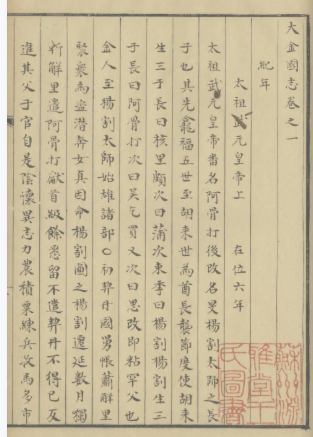 大金國志卷之一
紀年
太祖武元皇帝上 在位六年
太祖武元皇帝番名阿骨打後改名旻楊割太師之長
子也其先龕福五世至胡來世為酋長襲節度使胡來
生三子長曰核里頗次曰蒲次東季曰楊割楊割生三
子長曰阿骨打次曰吴乞買又次曰思改即粘罕父也
金人至楊割太師始雄諸部○初契丹國舅帳蕭解里
聚衆為盗潜奔女真因命楊割圖之楊割遷延數月獨
斬解里遣阿骨打獻首級餘悉留不遣契丹不得已反
進其父子官自是陰懷異志力農積粟練兵牧馬多市